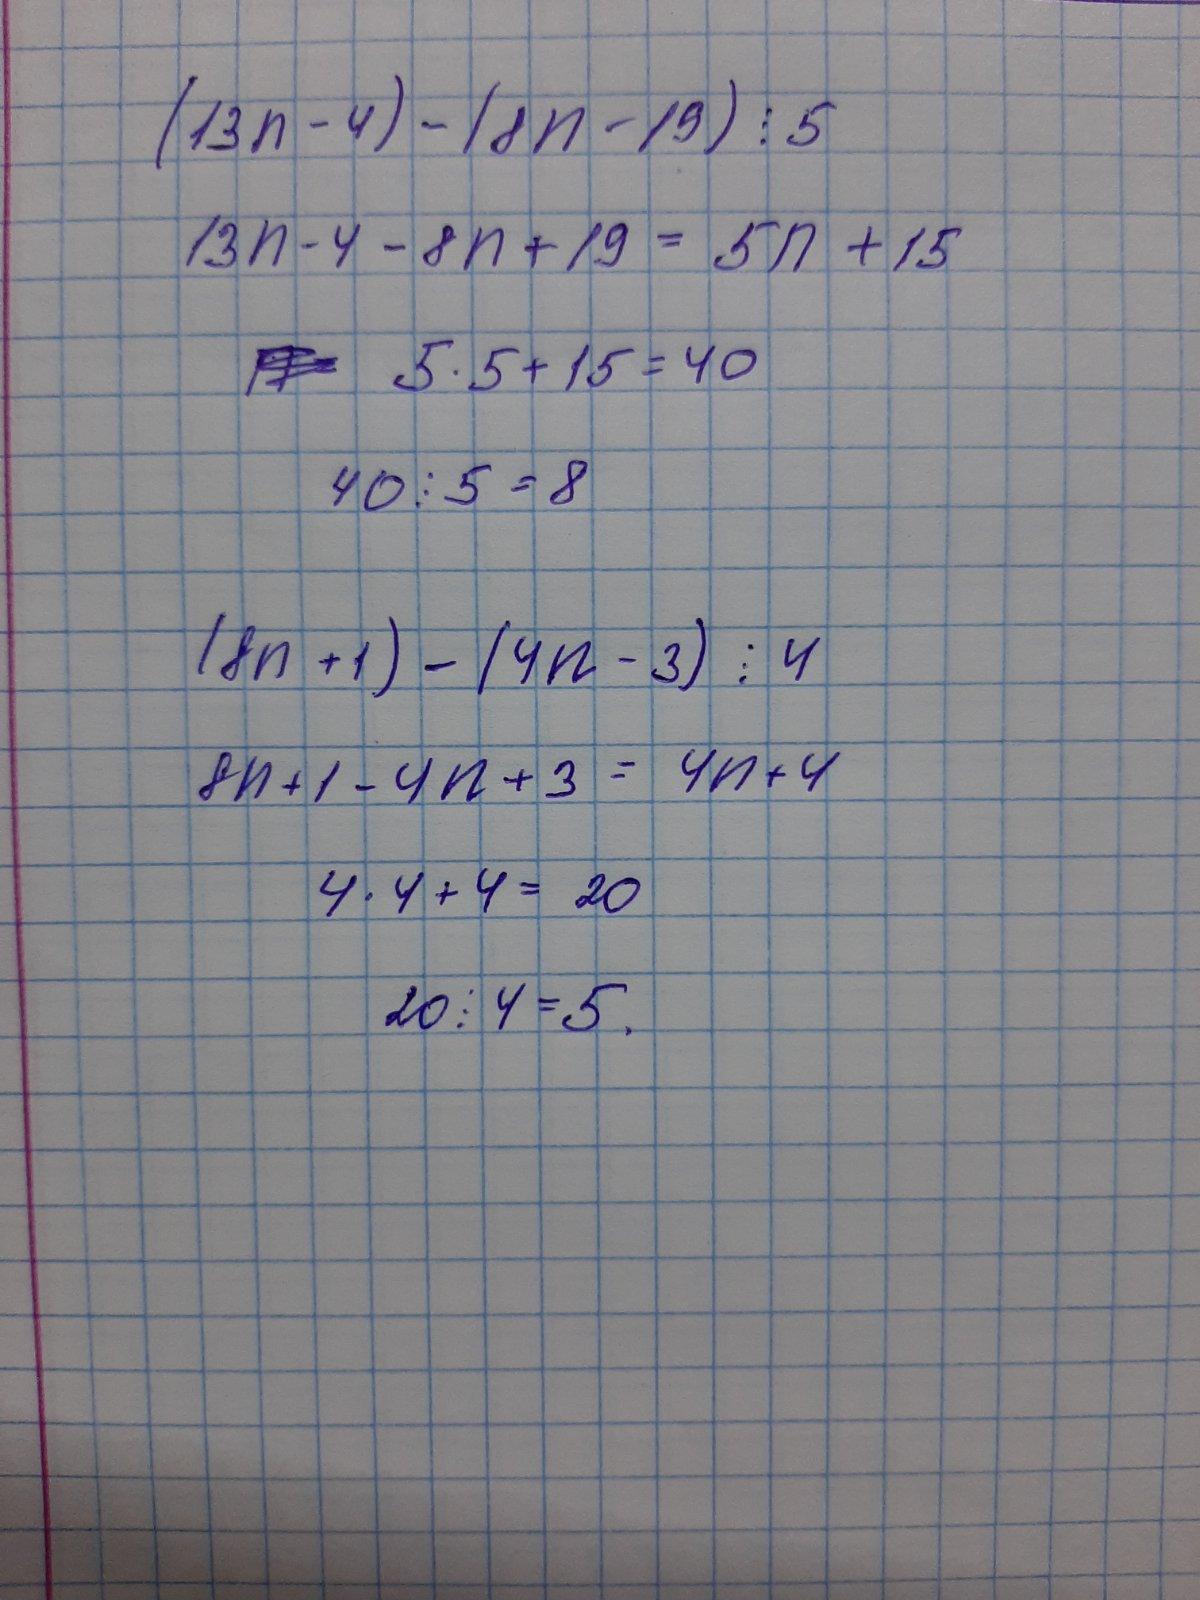 (13n - 4) - (8n - 19) ⋮ 5
13n - 4 - 8n + 19 = 5n + 15
5 · 5 + 15 = 40
40 ⋮ 5 = 8
(8n + 1) - (4n - 3) ⋮ 4
8n + 1 - 4n + 3 = 4n + 4
4 · 4 + 4 = 20
20 ⋮ 4 = 5.